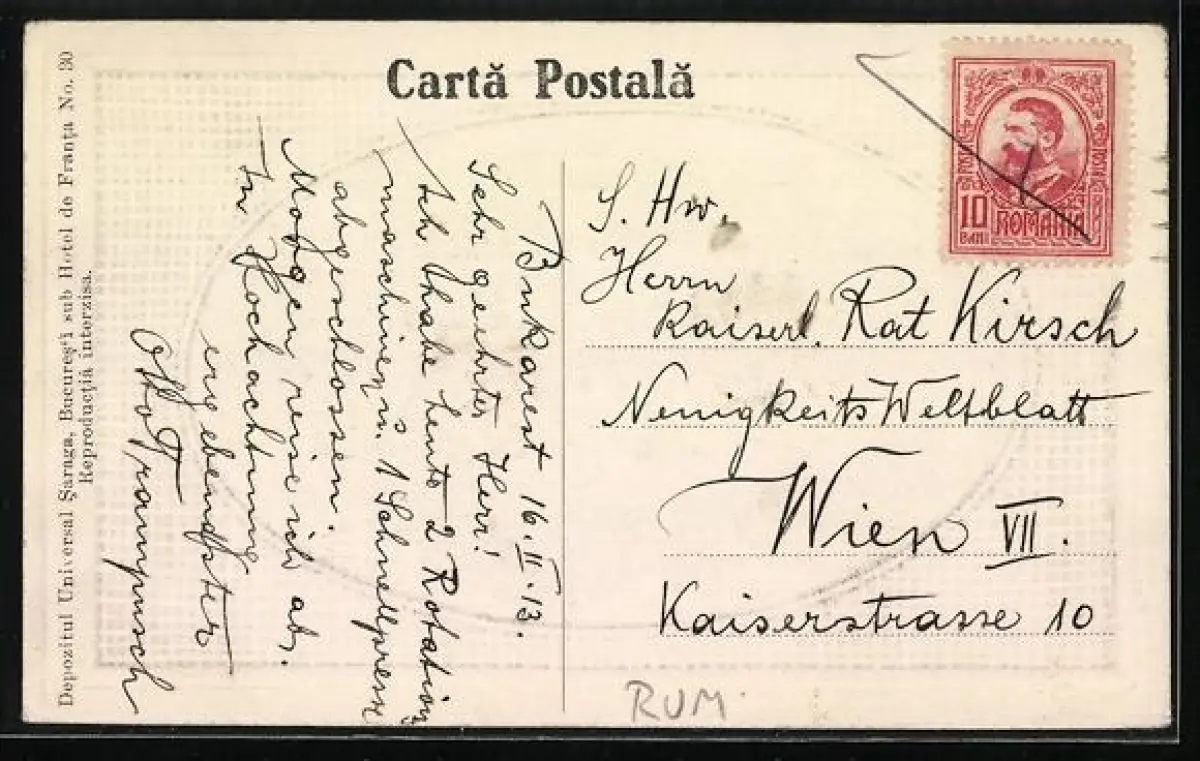 Cartă Postală
Depozitul Universal Şaraga, Bucureşti sub Hotel de Franţa No. 30
Reproducţia interzisa.
POSTA
POSTA
10
BANI
ROMANIA
Bukarest 16.II.13.
Sehr geehrter Herr!
Ich habe heute 2 Rotations
maschinen u. 1 Schnellpresse
abgeschlossen.
Morgen reise ich ab.
In Hochachtung
ergebendster
Otto
S. Hw.
Herrn
Kaiserl. Rat Kirsch
Neuigkeits Weltblatt
Wien VII.
Kaiserstrasse 10
RUM